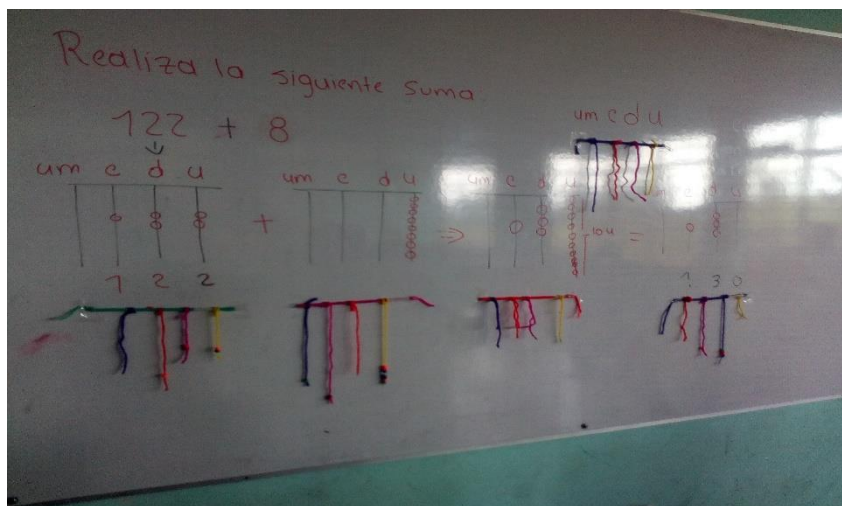 Realiza la siguiente suma
122 + 8
um c d u
um c d u
+
um c d u
um c d u
⇒
10u
=
1 2 2
1 3 0